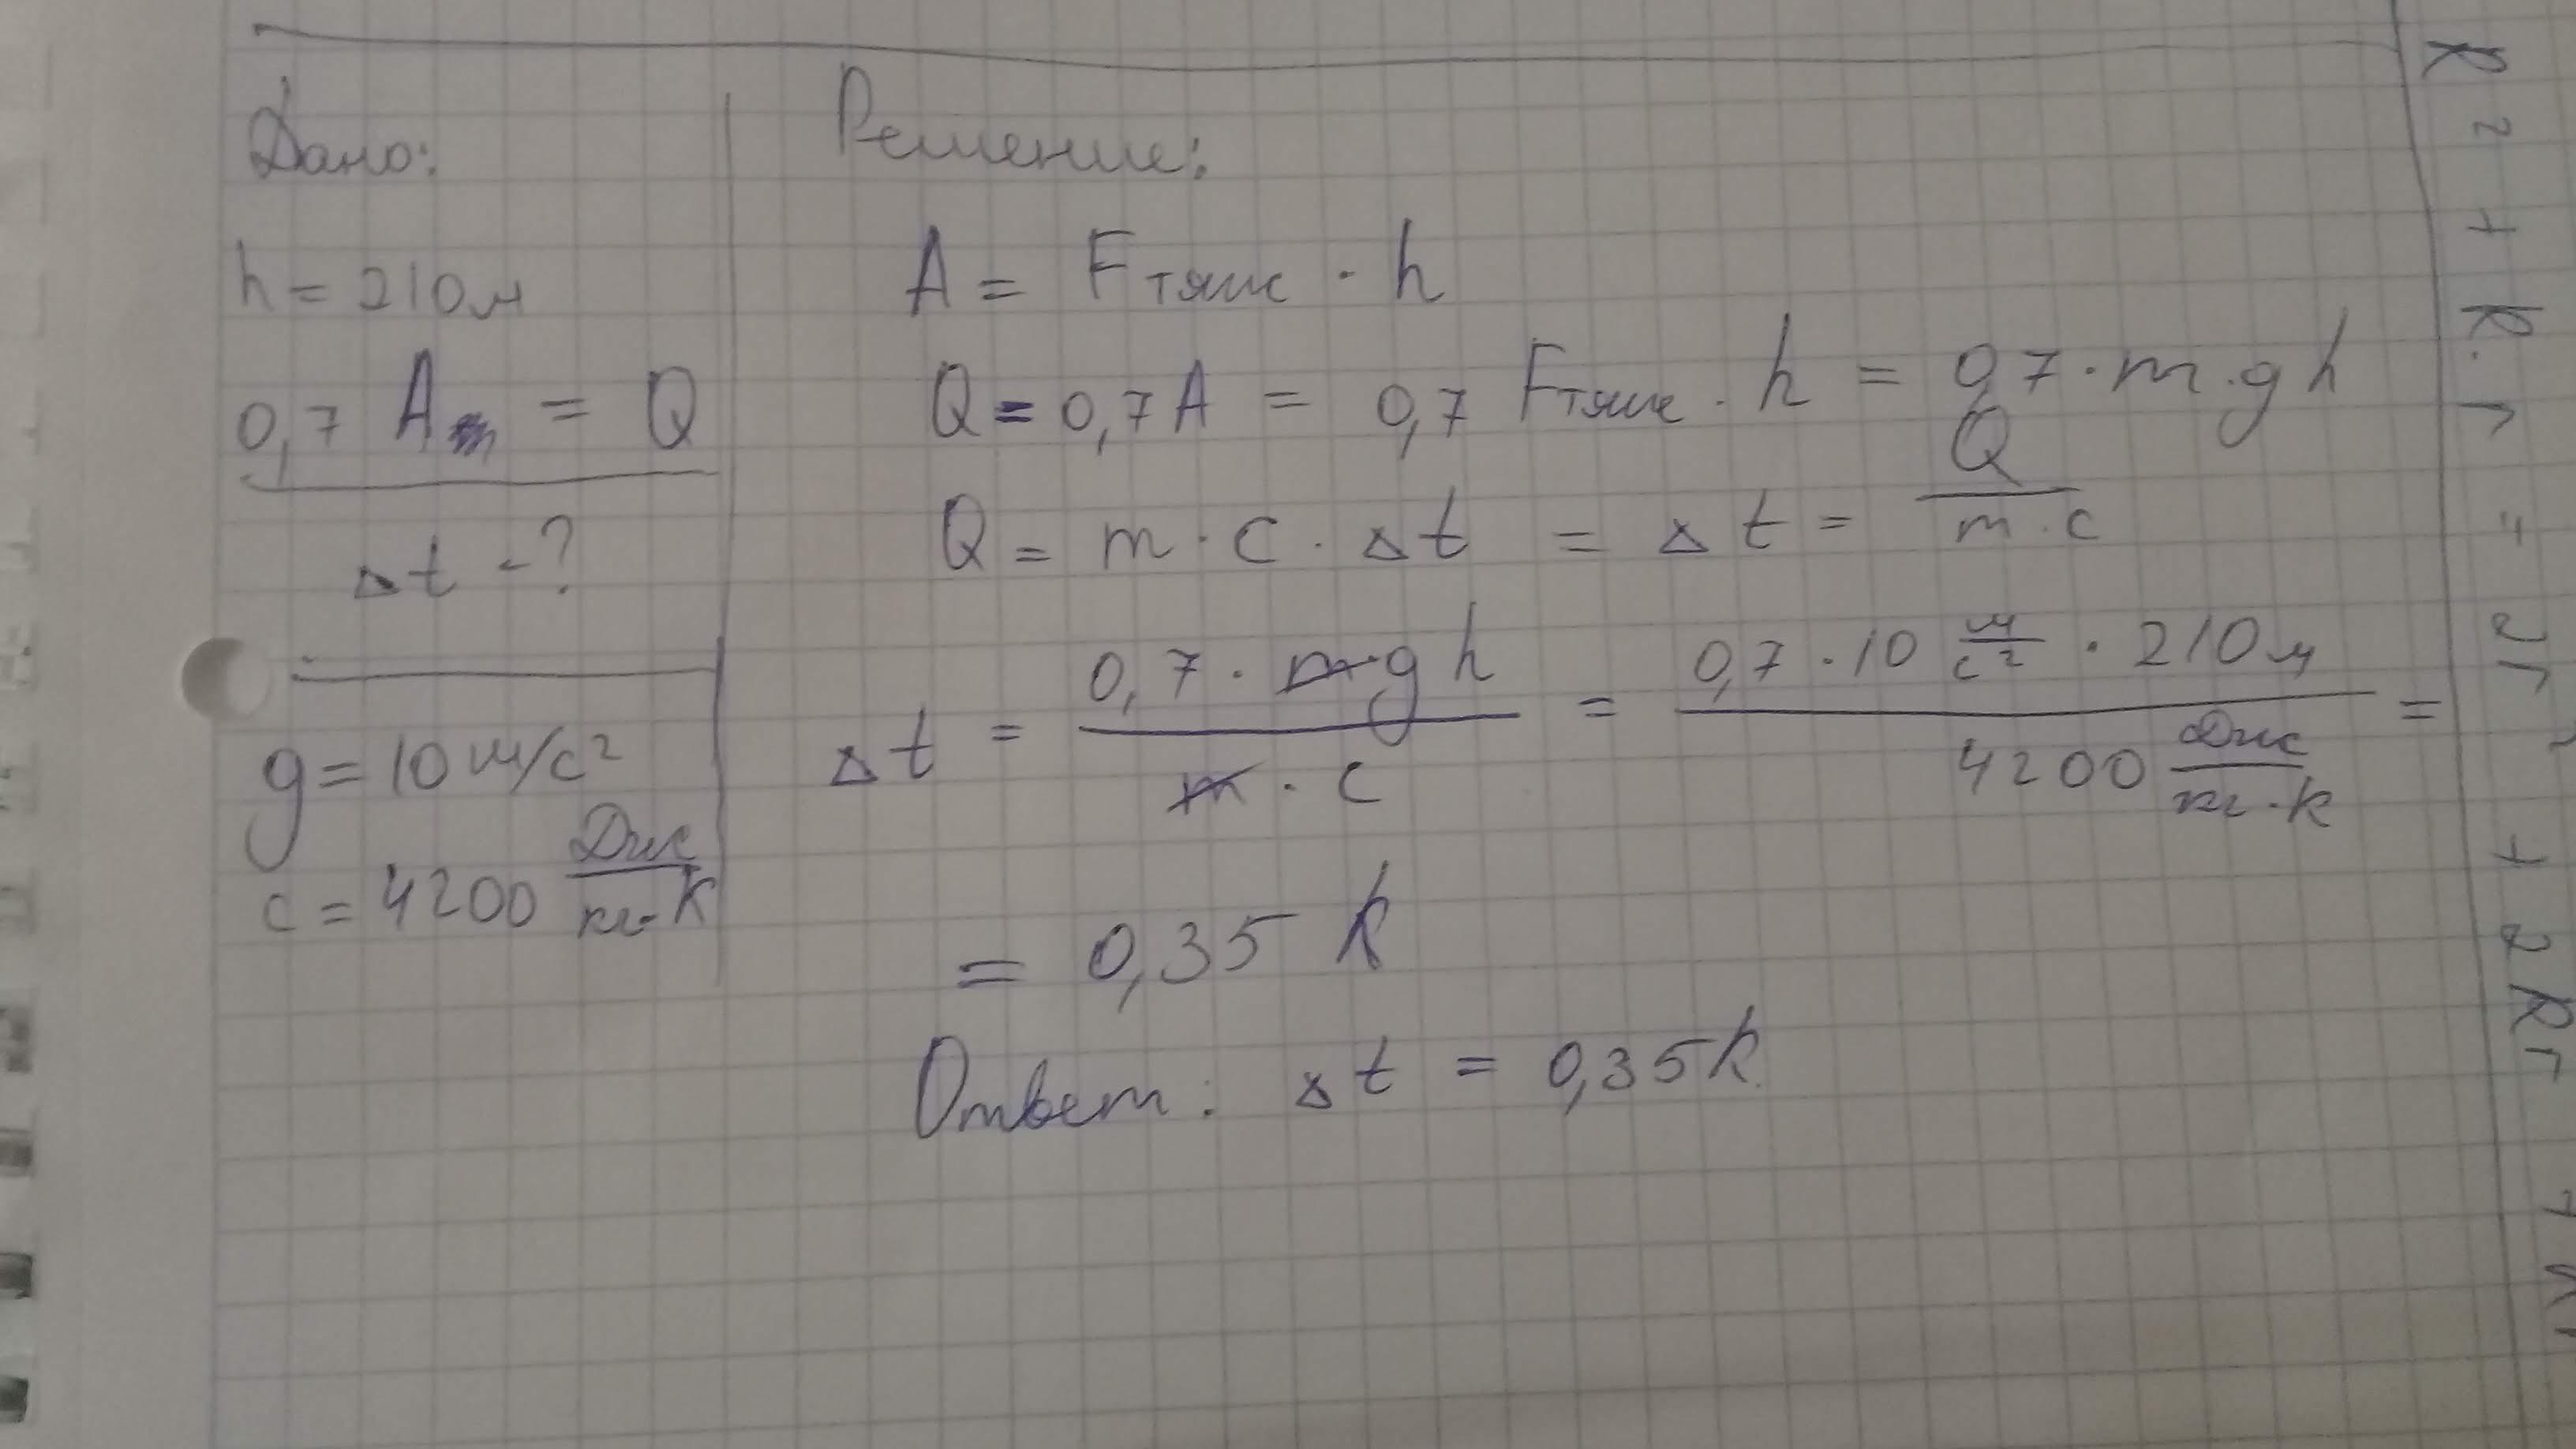 Дано:
h = 210м
0,7 A = Q
Δt - ?
g = 10 м/с²
c = 4200 Дж/кг·К
Решение:
A = Fтяж · h
Q = 0,7A = 0,7 Fтяж · h = 0,7 · m · g h
Q = m · c · Δt = Δt = Q/m · c
Δt = 0,7 · mg h/m · c = 0,7 · 10 м/с² · 210м/4200 Дж/кг · К =
= 0,35 К
Ответ: Δt = 0,35К